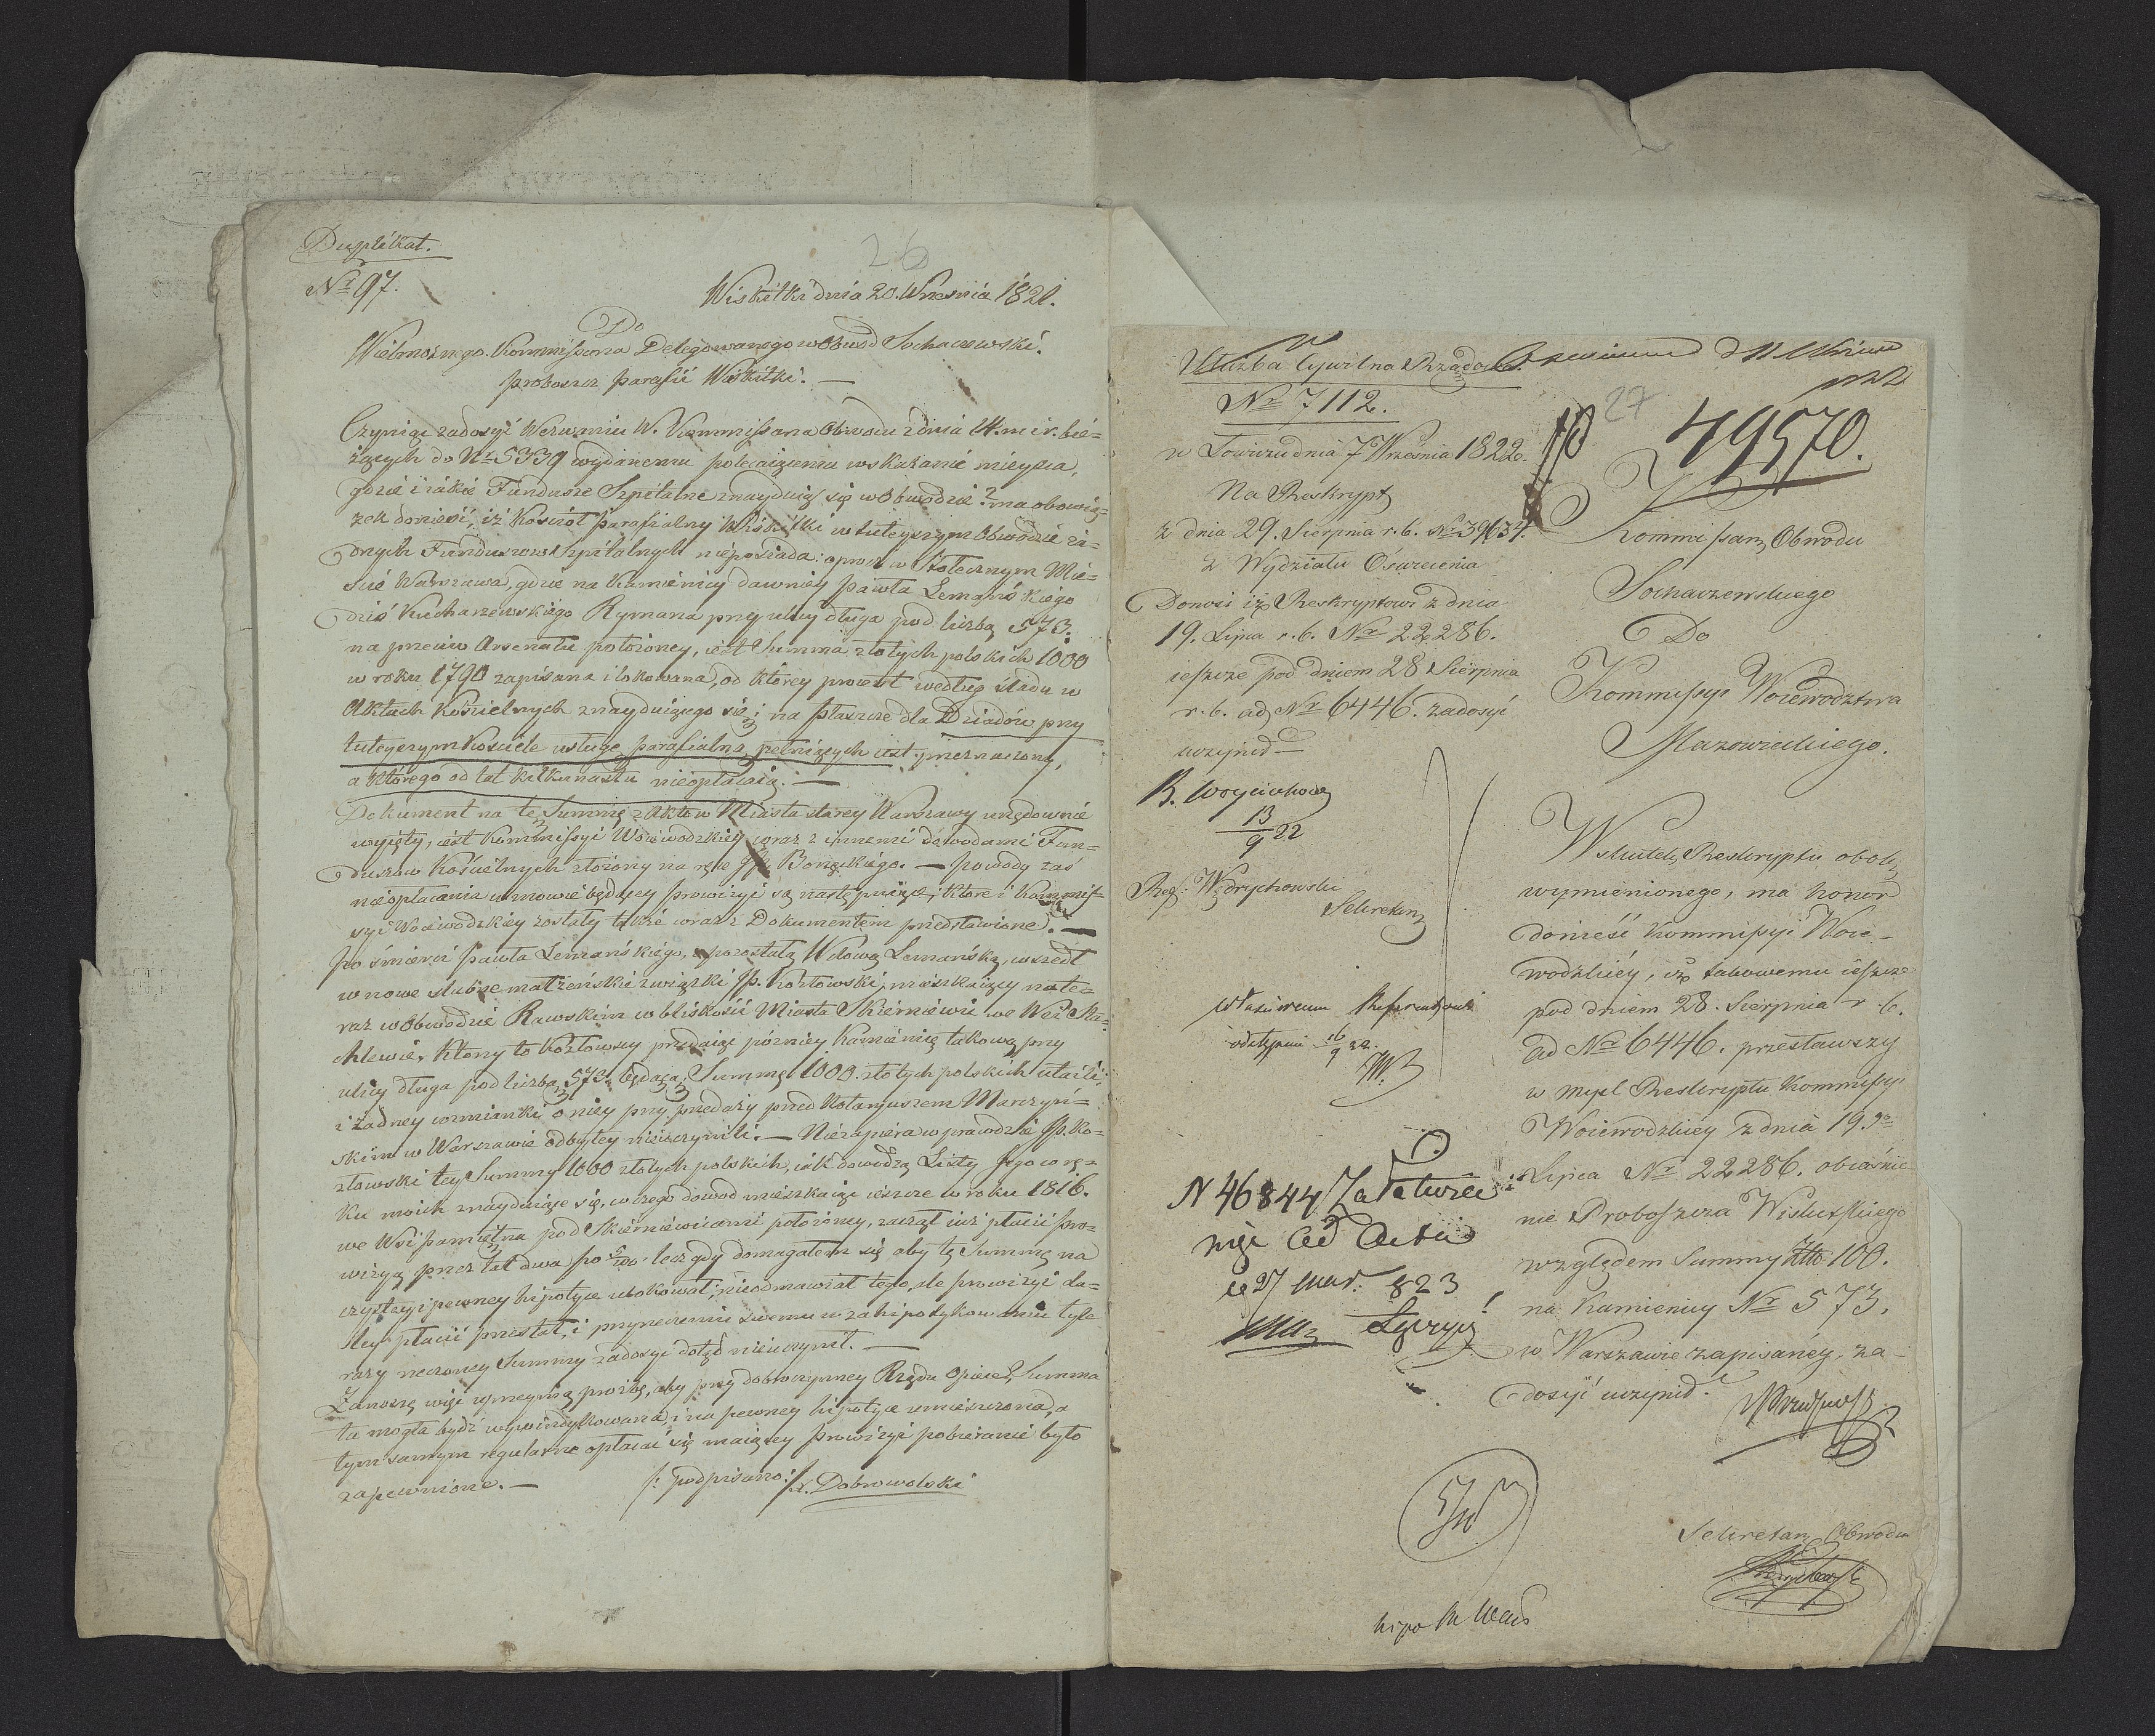 Duplikat.
26
Nr 97.
Wiskitki dnia 20. Wrzesnia 1821.
Do
Wielmożnego Kommissarza Delegowanego w Obwód Sochaczewski.
Proboszcz Parafii Wiskitki. —
Czyniąc zadosyć Wezwaniu W. Kommissarza Obwodu z dnia 14. m. i r. bie=
żących do Nr 5339 wydanemu polecaiącemu wskazanie mieysca,
gdzie i iakie Fundusze Szpitalne znayduią się w Obwodzie? ma obowią=
zek donieść, iż Kościół parafialny Wiskitki w tuteyszym Obwodzie ża=
dnych Funduszow Szpitalnych nieposiada: oprocz w Stołecznym Mie=
ście Warszawa, gdzie na Kamienicy dawniey Pawła Lemańskiego
dziś Kucharzewskiego Rymarza przy ulicy długa pod liczbą 573.
na przeciw Arsenału położoney, iest Summa złotych polskich 1000
w roku 1790 zapisana i lokowana, od ktorey procent według śladu w
Aktach Kościelnych znayduiącego się; na płaszcze dla Dziadów przy
tuteyszym Kościele usługę parafialną pełniących iest przeznaczony,
a którego od lat kilkunastu nieopłacaią. —
Dokument na tę Summę z Aktow Miasta starey Warszawy urzędownie
wyięty, iest Kommissyi Woiewodzkiey wraz z innemi dowodami Fun=
duszow Kościelnych złożony na ręce JP. Boreckiego. — Powody zaś
nieopłacania w mowie będącey prowizyi są następuiące, i ktore i Kommis=
syi Woiewodzkiey zostały także wraz z Dokumentem przedstawione. —
Po śmierci Pawła Lemańskiego, z pozostałą Wdową Lemańską, wszedł
w nowe slubne małżeńskie związki JP. Kozłowski, mieszkaiący na te=
raz w Obwodzie Rawskim w bliskości Miasta Skierniewic we Wsi Ma=
chlewie, Ktory to Kozłowscy przedaiąc pózniey Kamienicę takową przy
ulicy długa pod liczbą 573. będącą, Summę 1000. złotych polskich utaili,
i żadney wzmianki o niey przy przedaży przed Notaryuszem Marczyń=
skim w Warszawie odbytey nieuczynili. — Niezapiera w prawdzie JP. Ko=
złowski tey Summy 1000 złotych polskich, iak dowodzą Listy Jego w rę=
ku moich znayduiące się, w czego dowod mieszkaiąc ieszcze w roku 1816.
we Wsi Pamiętna pod Skierniewicami położoney, zaczął iuż płacić Pro=
wizyą przez lat dwa po 5/100. lecz gdy domagałem się aby tę Summę na
czystey i pewney hipotyce ulokował; nieodmawiał tego, ale prowizyi da=
ley płacić przestał, i przyrzeczeniu swemu w zahipotykowaniu tyle
razy rzeczoney Summy zadosyć dotąd nieuczynił. —
Zanoszę więc uprzeymą prożbę, aby przy dobroczynney Rządu Opiece, Summa
ta mogła bydź wywindykowana, i na pewney hipotyce umieszczona, a
tym samym regularne opłacać się maiącey Prowizyi pobieranie było
zapewnione. —
/: podpisano :/ X. Dobrowolski
Służba Cywilna Rządowa.
Nr 7112.
w Łowiczu dnia 7 Września 1822.
Na Reskrypt
z dnia 29. Sierpnia r. b. Nr 39634.
z Wydziału Oswiecenia
Donosi iż Reskryptowi z dnia
19. Lipca r. b. Nr 22286.
ieszcze pod dniem 28 Sierpnia
r. b. ad Nr 6446. zadosyć
uczynił —
13
9 22
Sekretarz
16
9 22.
N 46844 Załatwie
nie ad Acta
27 Mar. 823
27
49570.
Kommissarz Obwodu
Sochaczewskiego
Do
Kommissyi Woiewodztwa
Mazowieckiego.
W skutek Reskryptu obok
wymienionego, ma honor
donieść Kommissyi Woie-
wodzkiéy, iż takowemu ieszcze
pod dniem 28. Sierpnia r. b.
ad Nr 6446. przesławszy
w myśl Reskryptu Kommissyi
Woiewodzkiey z dnia 19.go
Lipca Nr 22286. obiaśnie-
nie Proboszcza Wiskitskiego
względem Summy Złtp 100.
na Kamienicy Nr 573.
w Warszawie zapisanéy, za-
dosyć uczynił.
Sekretarz Obwodu